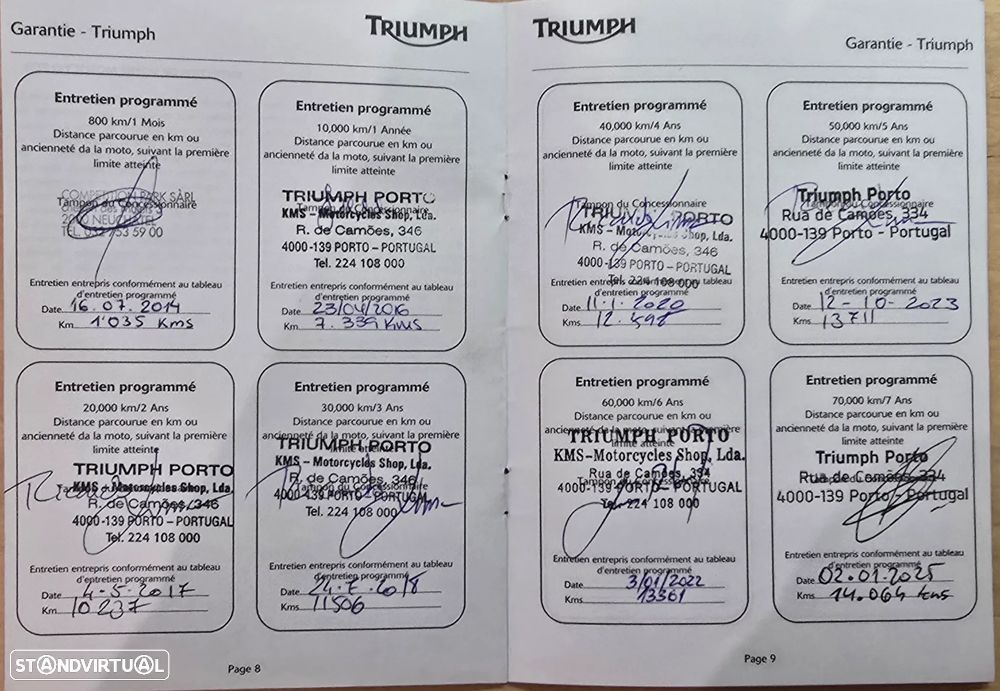 Garantie - Triumph
TRIUMPH
Entretien programmé
800 km/1 Mois
Distance parcourue en km ou
ancienneté da la moto, suivant la première
limite atteinte
COMPETITION PARK SÀRL
Tampon du Concessionnaire
Entretien entrepris conformément au tableau
d'entretien programmé
Date 16.07.2014
Km 1'035 Kms
Entretien programmé
10,000 km/1 Année
Distance parcourue en km ou
ancienneté da la moto, suivant la première
limite atteinte
TRIUMPH PORTO
Tampon du Concessionnaire
KMS - Motorcycles Shop, Lda.
R. de Camões, 346
4000-139 PORTO - PORTUGAL
Tel. 224 108 000
Entretien entrepris conformément au tableau
d'entretien programmé
Date 23/04/2016
Km 7.339 Kms
Entretien programmé
20,000 km/2 Ans
Distance parcourue en km ou
ancienneté da la moto, suivant la première
limite atteinte
TRIUMPH PORTO
KMS - Motorcycles Shop, Lda.
R. de Camões, 346
4000-139 PORTO - PORTUGAL
Tel. 224 108 000
Entretien entrepris conformément au tableau
d'entretien programmé
Date 4-5-2017
Km 10 237
Entretien programmé
30,000 km/3 Ans
Distance parcourue en km ou
ancienneté da la moto, suivant la première
limite atteinte
TRIUMPH PORTO
KMS - Motorcycles Shop, Lda.
R. de Camões, 346
Tampon du Concessionnaire
4000-139 PORTO - PORTUGAL
Tel. 224 108 000
Entretien entrepris conformément au tableau
d'entretien programmé
Date 24.7.2018
Km 11506
Page 8
TRIUMPH
Garantie - Triumph
Entretien programmé
40,000 km/4 Ans
Distance parcourue en km ou
ancienneté da la moto, suivant la première
limite atteinte
Tampon du Concessionnaire
TRIUMPH PORTO
KMS - Motorcycles Shop, Lda.
R. de Camões, 346
4000-139 PORTO - PORTUGAL
Tel. 224 108 000
Entretien entrepris conformément au tableau
d'entretien programmé
Date 11.1.2020
Kms 12.498
Entretien programmé
50,000 km/5 Ans
Distance parcourue en km ou
ancienneté da la moto, suivant la première
limite atteinte
Triumph Porto
Tampon du Concessionnaire
Rua de Camões, 334
4000-139 Porto - Portugal
Entretien entrepris conformément au tableau
d'entretien programmé
Date 12-10-2023
Kms 13711
Entretien programmé
60,000 km/6 Ans
Distance parcourue en km ou
ancienneté da la moto, suivant la première
limite atteinte
TRIUMPH PORTO
KMS-Motorcycles Shop, Lda.
Rua de Camões, 334
Tampon du Concessionnaire
4000-139 PORTO - PORTUGAL
Tel. 224 108 000
Entretien entrepris conformément au tableau
d'entretien programmé
Date 3/01/2022
Kms 13361
Entretien programmé
70,000 km/7 Ans
Distance parcourue en km ou
ancienneté da la moto, suivant la première
limite atteinte
Triumph Porto
Rua de Camões, 334
4000-139 Porto - Portugal
Entretien entrepris conformément au tableau
d'entretien programmé
Date 02.01.2025
Kms 14.064 kms
Page 9
STANDVIRTUAL